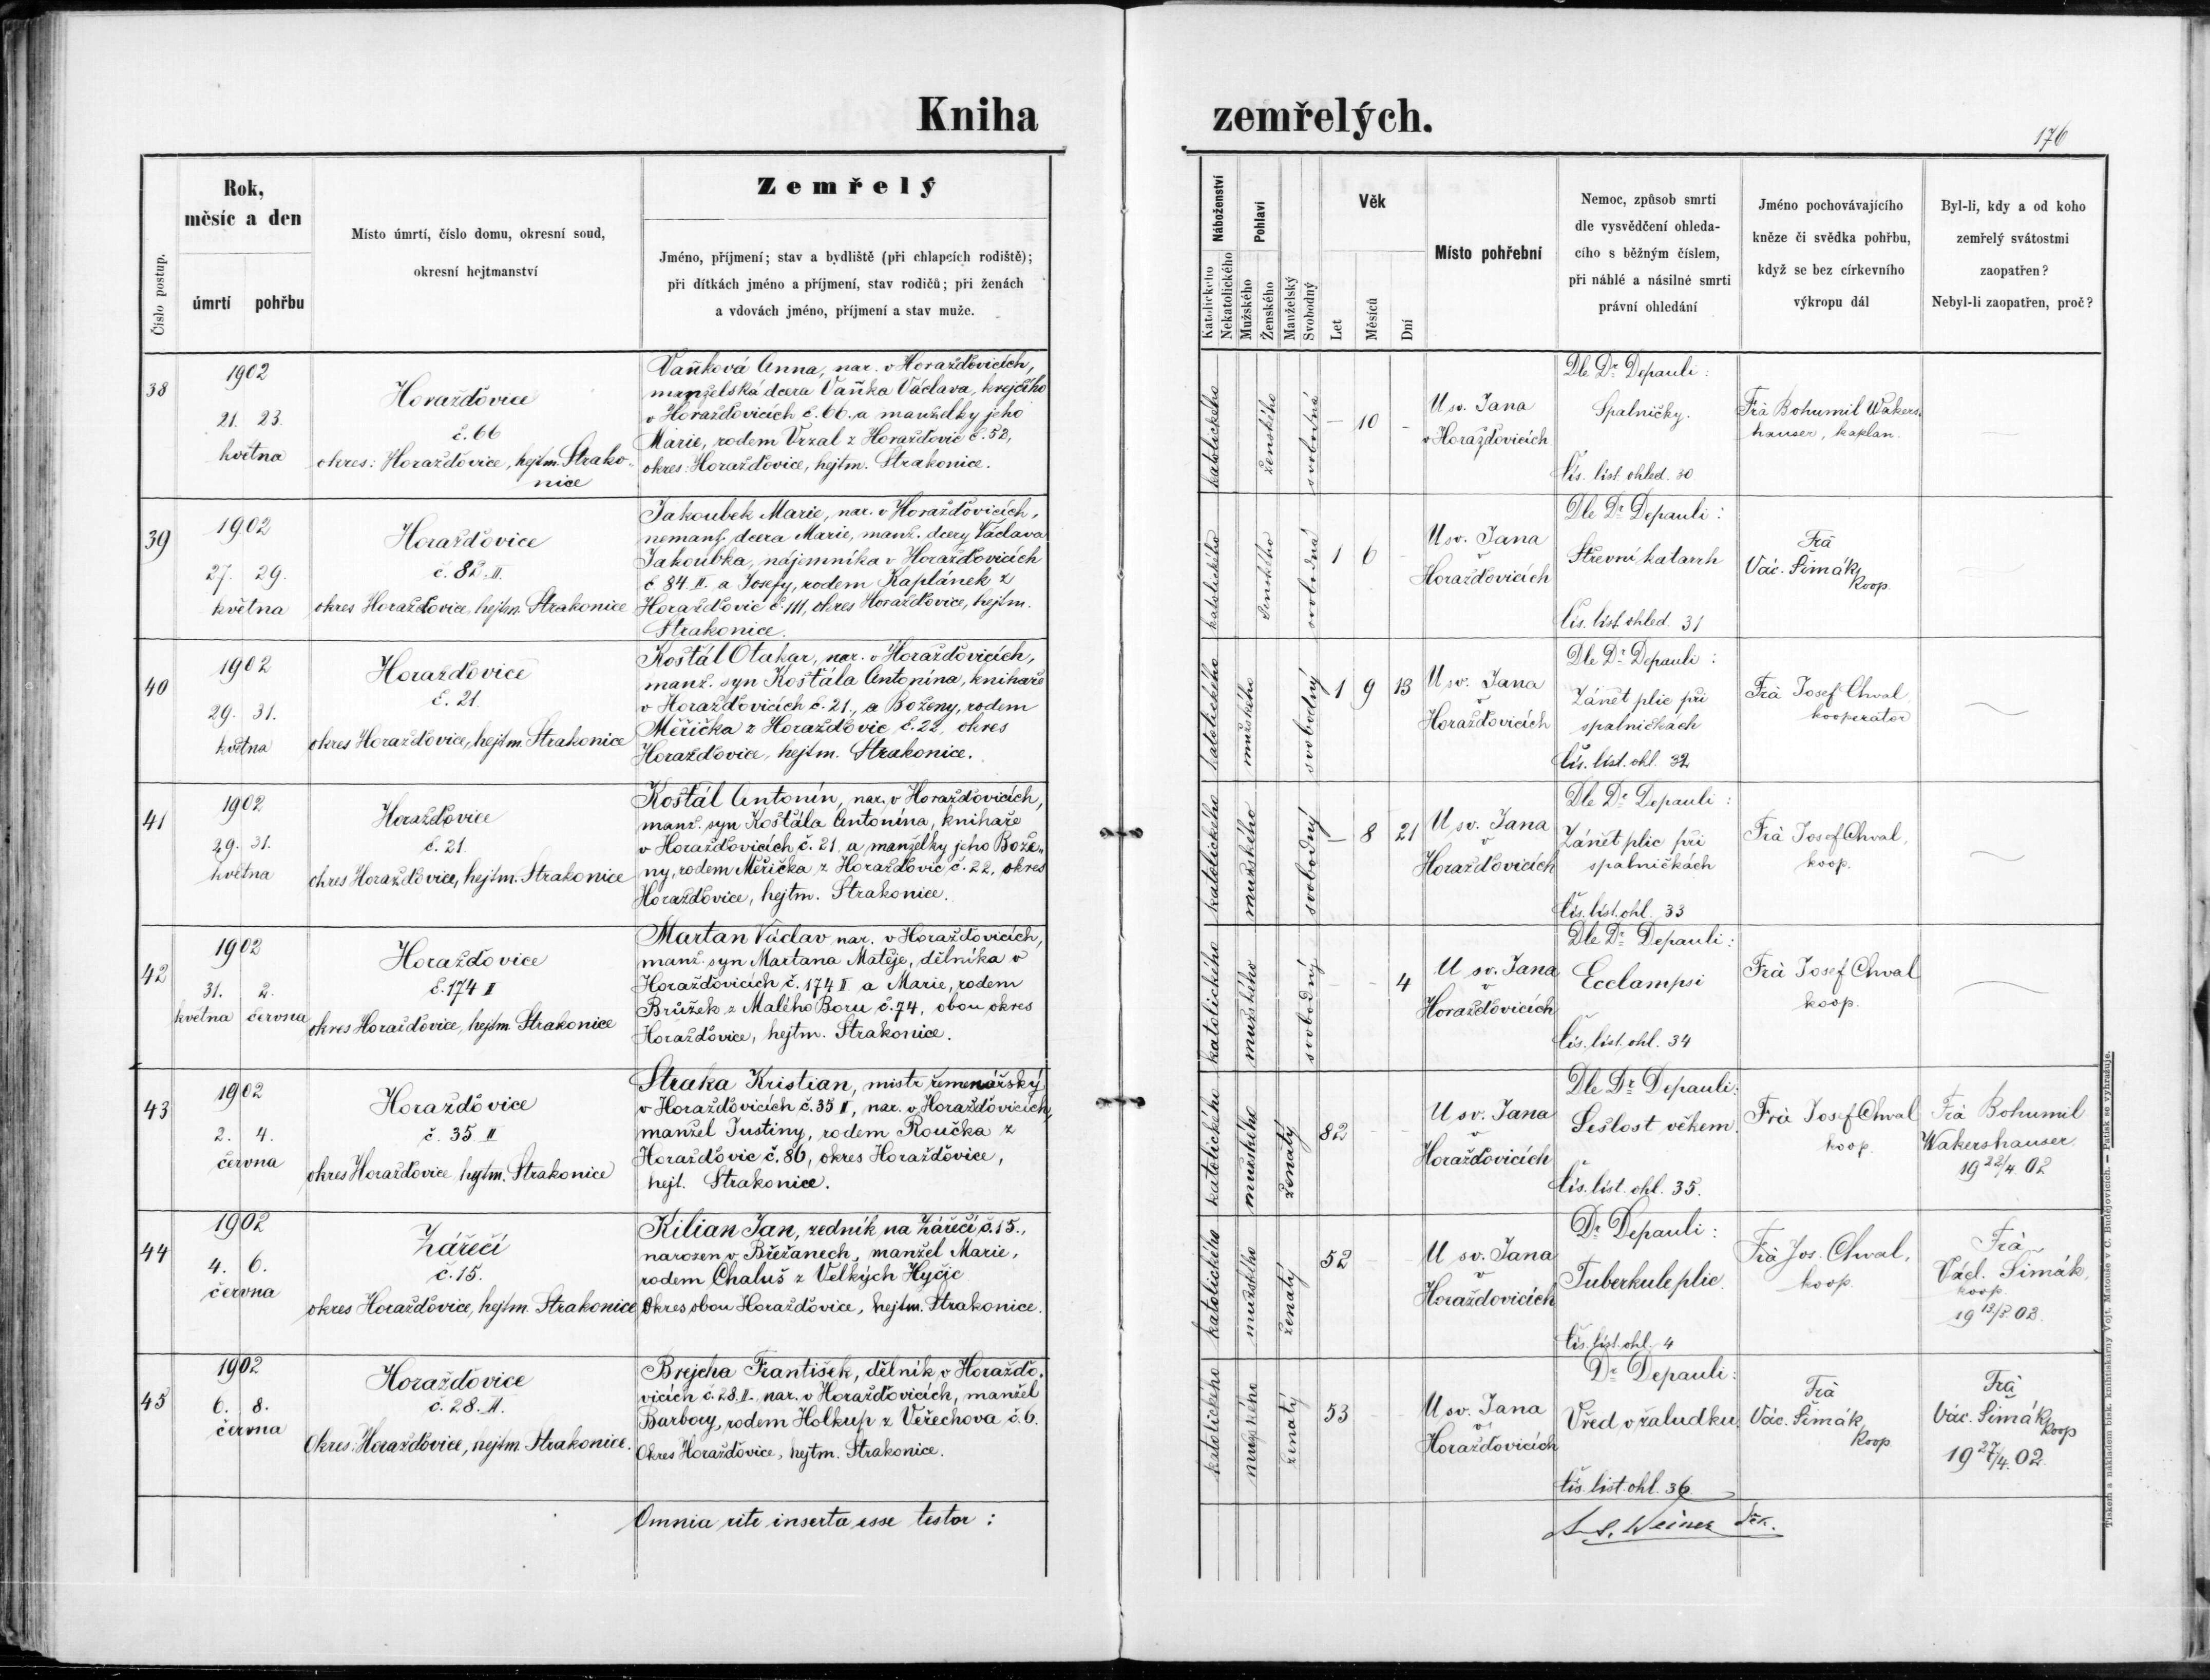 Kniha
zemřelých.
176
Číslo postup.
Rok,
měsíc a den
úmrtí
pohřbu
Místo úmrtí, číslo domu, okresní soud,
okresní hejtmanství
Zemřelý
Jméno, příjmení; stav a bydliště (při chlapcích rodiště);
při dítkách jméno a příjmení, stav rodičů; při ženách
a vdovách jméno, příjmení a stav muže.
Náboženství
Katolického
Nekatolického
Pohlaví
Mužského
Ženského
Manželský
Svobodný
Věk
Let
Měsíců
Dní
Místo pohřební
Nemoc, způsob smrti
dle vysvědčení ohleda-
cího s běžným číslem,
při náhlé a násilné smrti
právní ohledání
Jméno pochovávajícího
kněze či svědka pohřbu,
když se bez církevního
výkropu dál
Byl-li, kdy a od koho
zemřelý svátostmi
zaopatřen?
Nebyl-li zaopatřen, proč?
38
1902
21. 23.
května
Horažďovice
č. 66
okres: Horažďovice, hejtm. Strako-
nice
Vaňková Anna, nar. v Horažďovicích,
manželská dcera Vaňka Václava, krejčího
v Horažďovicích č. 66. a manželky jeho
Marie, rodem Vrzal z Horažďovic č. 52,
okres: Horažďovice, hejtm. Strakonice.
katolického
ženského
svobodná
– 10 –
U sv. Jana
v Horažďovicích
Dle Dr Depauli:
Spalničky.
čís. list. ohled. 30
Frà Bohumil Wakers-
hauser, kaplan.
39
1902
27. 29.
května
Horažďovice
č. 82. II.
okres Horažďovice, hejtm. Strakonice
Jakoubek Marie, nar. v Horažďovicích,
nemanž. dcera Marie, manž. dcery Václava
Jakoubka, nájemníka v Horažďovicích
č 84. II. a Josefy, rodem Kaplánek z
Horažďovic č. 111, okres Horažďovice, hejtm.
Strakonice.
katolického
ženského
svobodná
1 6 -
U sv. Jana
v
Horažďovicích
Dle Dr Depauli:
Střevní katarrh
čís. list. ohled. 31
Frà
Vác. Šimák
koop.
40
1902
29. 31.
května
Horažďovice
č. 21.
okres Horažďovice, hejtm. Strakonice
Košťál Otakar, nar. v Horažďovicích,
manž. syn Košťála Antonína, knihaře
v Horažďovicích č. 21., a Boženy, rodem
Měřička z Horažďovic, č. 22, okres
Horažďovice, hejtm. Strakonice.
katolického
mužského
svobodný
1 9 13
U sv. Jana
v
Horažďovicích
Dle Dr Depauli:
Zánět plic při
spalničkách
čís. list. ohl. 32
Frà Josef Chval,
kooperátor
41
1902
29. 31.
května
Horažďovice
č. 21.
okres Horažďovice, hejtm. Strakonice
Košťál Antonín, nar. v Horažďovicích,
manž. syn Košťála Antonína, knihaře
v Horažďovicích č. 21. a manželky jeho Bože-
ny, rodem Měřička z Horažďovic č. 22, okres
Horažďovice, hejtm. Strakonice.
katolického
mužského
svobodný
– 8 21
U sv. Jana
v
Horažďovicích
Dle Dr Depauli:
Zánět plic při
spalničkách
čís. list. ohl. 33
Frà Josef Chval,
koop.
42
1902
31. 2.
května června
Horažďovice
č. 174 II
okres Horažďovice, hejtm. Strakonice
Martan Václav nar. v Horažďovicích,
manž. syn Martana Matěje, dělníka v
Horažďovicích č. 174 II a Marie, rodem
Brůžek z Malého Boru č. 74, obou okres
Horažďovice, hejtm. Strakonice.
katolického
mužského
svobodný
- - 4
U sv. Jana
v
Horažďovicích
Dle Dr Depauli:
Ecclampsi
čís. list. ohl. 34
Frà Josef Chval
koop.
43
1902
2. 4.
června
Horažďovice
č. 35 II
okres Horažďovice hejtm. Strakonice
Straka Kristian, mistr řemenářský
v Horažďovicích č. 35 II, nar. v Horažďovicích,
manžel Justiny, rodem Roučka z
Horažďovic č. 86, okres Horažďovice,
hejt. Strakonice.
katolického
mužského
ženatý
82 - -
U sv. Jana
v
Horažďovicích
Dle Dr Depauli:
Sešlost věkem.
čís. list. ohl. 35.
Frà Josef Chval
koop.
Frà Bohumil
Wakershauser
19 22/4. 02
44
1902
4. 6.
června
Zářečí
č. 15.
okres Horažďovice, hejtm. Strakonice
Kilian Jan, zedník na Zářečí č. 15.,
narozen v Břežanech, manžel Marie,
rodem Chaluš z Velkých Hyčic
Okres obou Horažďovice, hejtm. Strakonice.
katolického
mužského
ženatý
52
U sv. Jana
v
Horažďovicích
Dr Depauli:
Tuberkule plic.
čís. list. ohl. 4
Frà Jos. Chval,
koop.
Frà
Václ. Šimák,
koop.
19 13/5. 02.
45
1902
6. 8.
června
Horažďovice
č. 28. II.
Okres: Horažďovice, hejtm. Strakonice.
Brejcha František, dělník v Horažďo-
vicích č. 28. II. nar. v Horažďovicích, manžel
Barbory, rodem Holkup z Veřechova č. 6.
Okres Horažďovice, hejtm. Strakonice.
katolického
mužského
ženatý
53
U sv. Jana
v
Horažďovicích
Dr Depauli:
Vřed v žaludku.
čís. list. ohl. 36
Frà
Vác. Šimák
koop
Frà
Vác. Šimák
koop
19 27/4. 02.
Omnia rite inserta esse testor:
Weiner děk.
Tiskem a nákladem bisk. knihtiskárny Vojt. Matouše v Č. Budějovicích. — Patisk se vyhražuje.